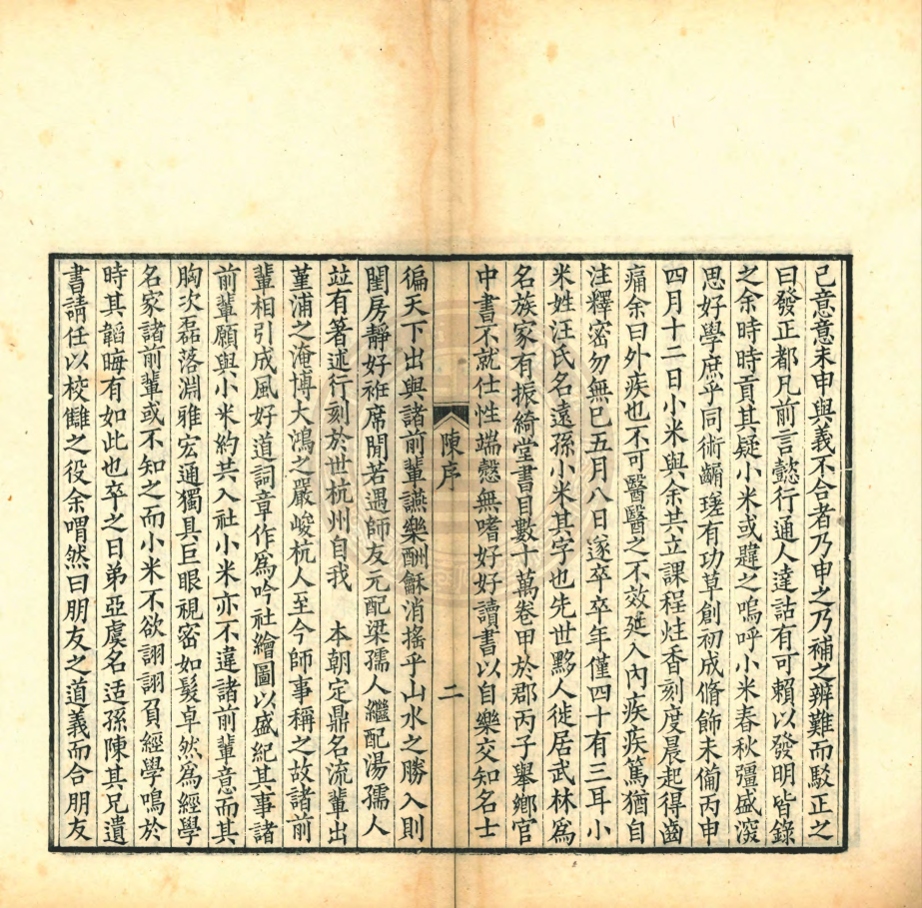 己意意未申與義不合者乃申之乃補之辨難而駁正之
曰發正都凡前言懿行通人達詁有可賴以發明皆錄
之余時時貢其疑小米或韙之嗚呼小米春秋彊盛湥
思好學庶乎同術齱瑳有功草創初成脩飾未僃丙申
四月十二日小米與余共立課程炷香刻度晨起得齒
痛余曰外疾也不可醫醫之不效延入內疾疾篤猶自
注釋密勿無已五月八日遂卒卒年僅四十有三耳小
米姓汪氏名遠孫小米其字也先世黟人徙居武林為
名族家有振綺堂書目數十萬卷甲於郡丙子舉鄉官
中書不就仕性端慤無嗜好好讀書以自樂交知名士
陳序
二
徧天下出與諸前輩讌樂酬龢消搖乎山水之勝入則
閨房靜好袵席閒若遇師友元配梁孺人繼配湯孺人
竝有著述行刻於世杭州自我　本朝定鼎名流輩出
堇浦之淹博大鴻之嚴峻杭人至今師事稱之故諸前
輩相引成風好道詞章作爲吟社繪圖以盛紀其事諸
前輩願與小米約共入社小米亦不違諸前輩意而其
胸次磊落淵雅宏通獨具巨眼視密如髮卓然爲經學
名家諸前輩或不知之而小米不欲詡詡負經學鳴於
時其韜晦有如此也卒之日弟亞虞名适孫陳其兄遺
書請任以校讎之役余喟然曰朋友之道義而合朋友